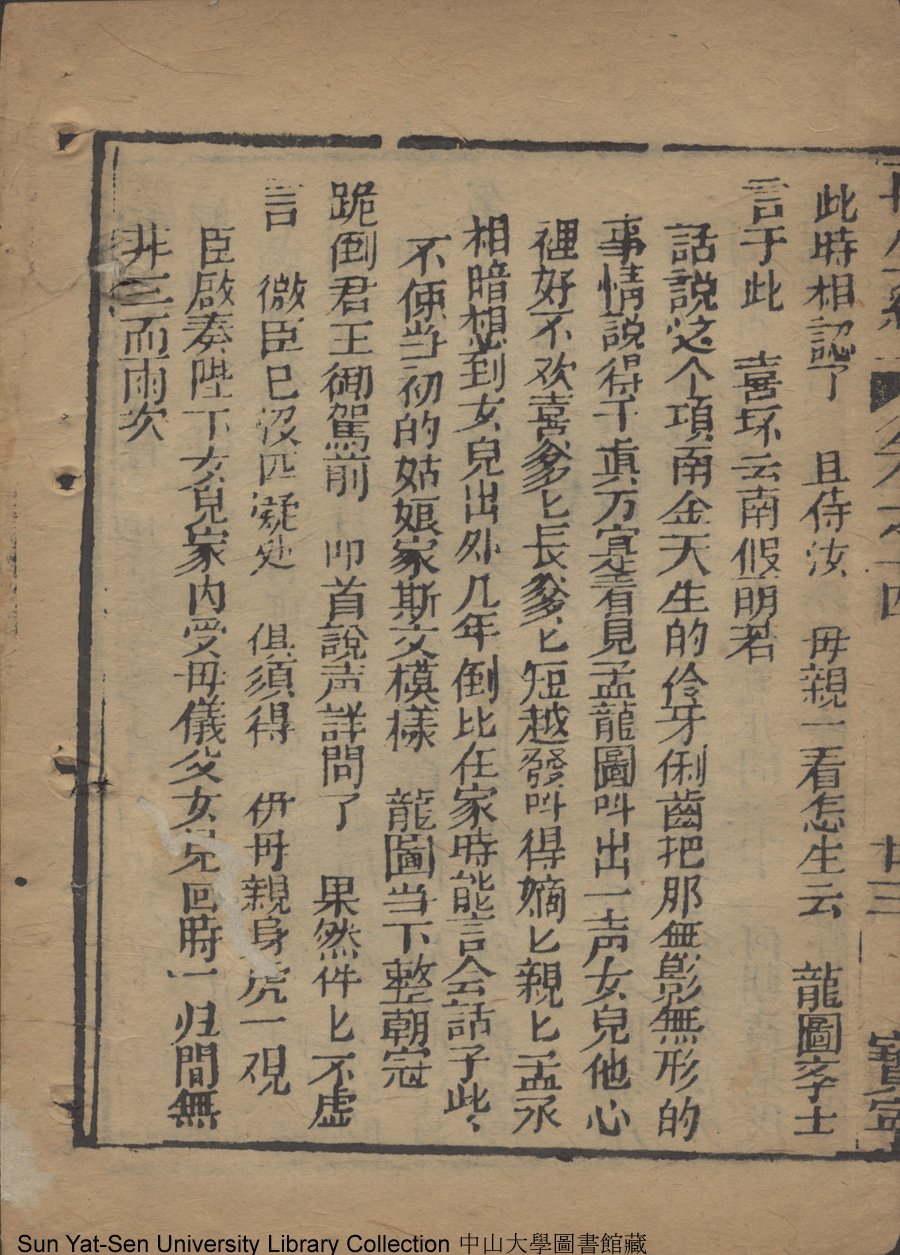 此時相認了　且侍汝　毋親一看怎生云　龍圖孝士
言于此　喜坏云南假萌君
話說这个項南金天生的伶牙俐齒把那無影無形的
事情說得千真万寔看見孟龍圖叫出一声女兒他心
裡好不欢喜爹匕長爹匕短越發叫得嫡匕親匕孟丞
相暗想到女兒出外几年倒比在家時能言会話子此
不像当初的姑娘家斯文模樣　龍圖当下整朝冠
跪倒君王御駕前　叩首說声詳問了　果然件匕不虚
言　微臣已沒疑处　俱須得　伊毋親身一覌
臣啟奏陛下女兒家內受毋儀父女兒回時一归間無
非三而兩次
廿三
Sun Yat-Sen University Library Collection 中山大學圖書館藏